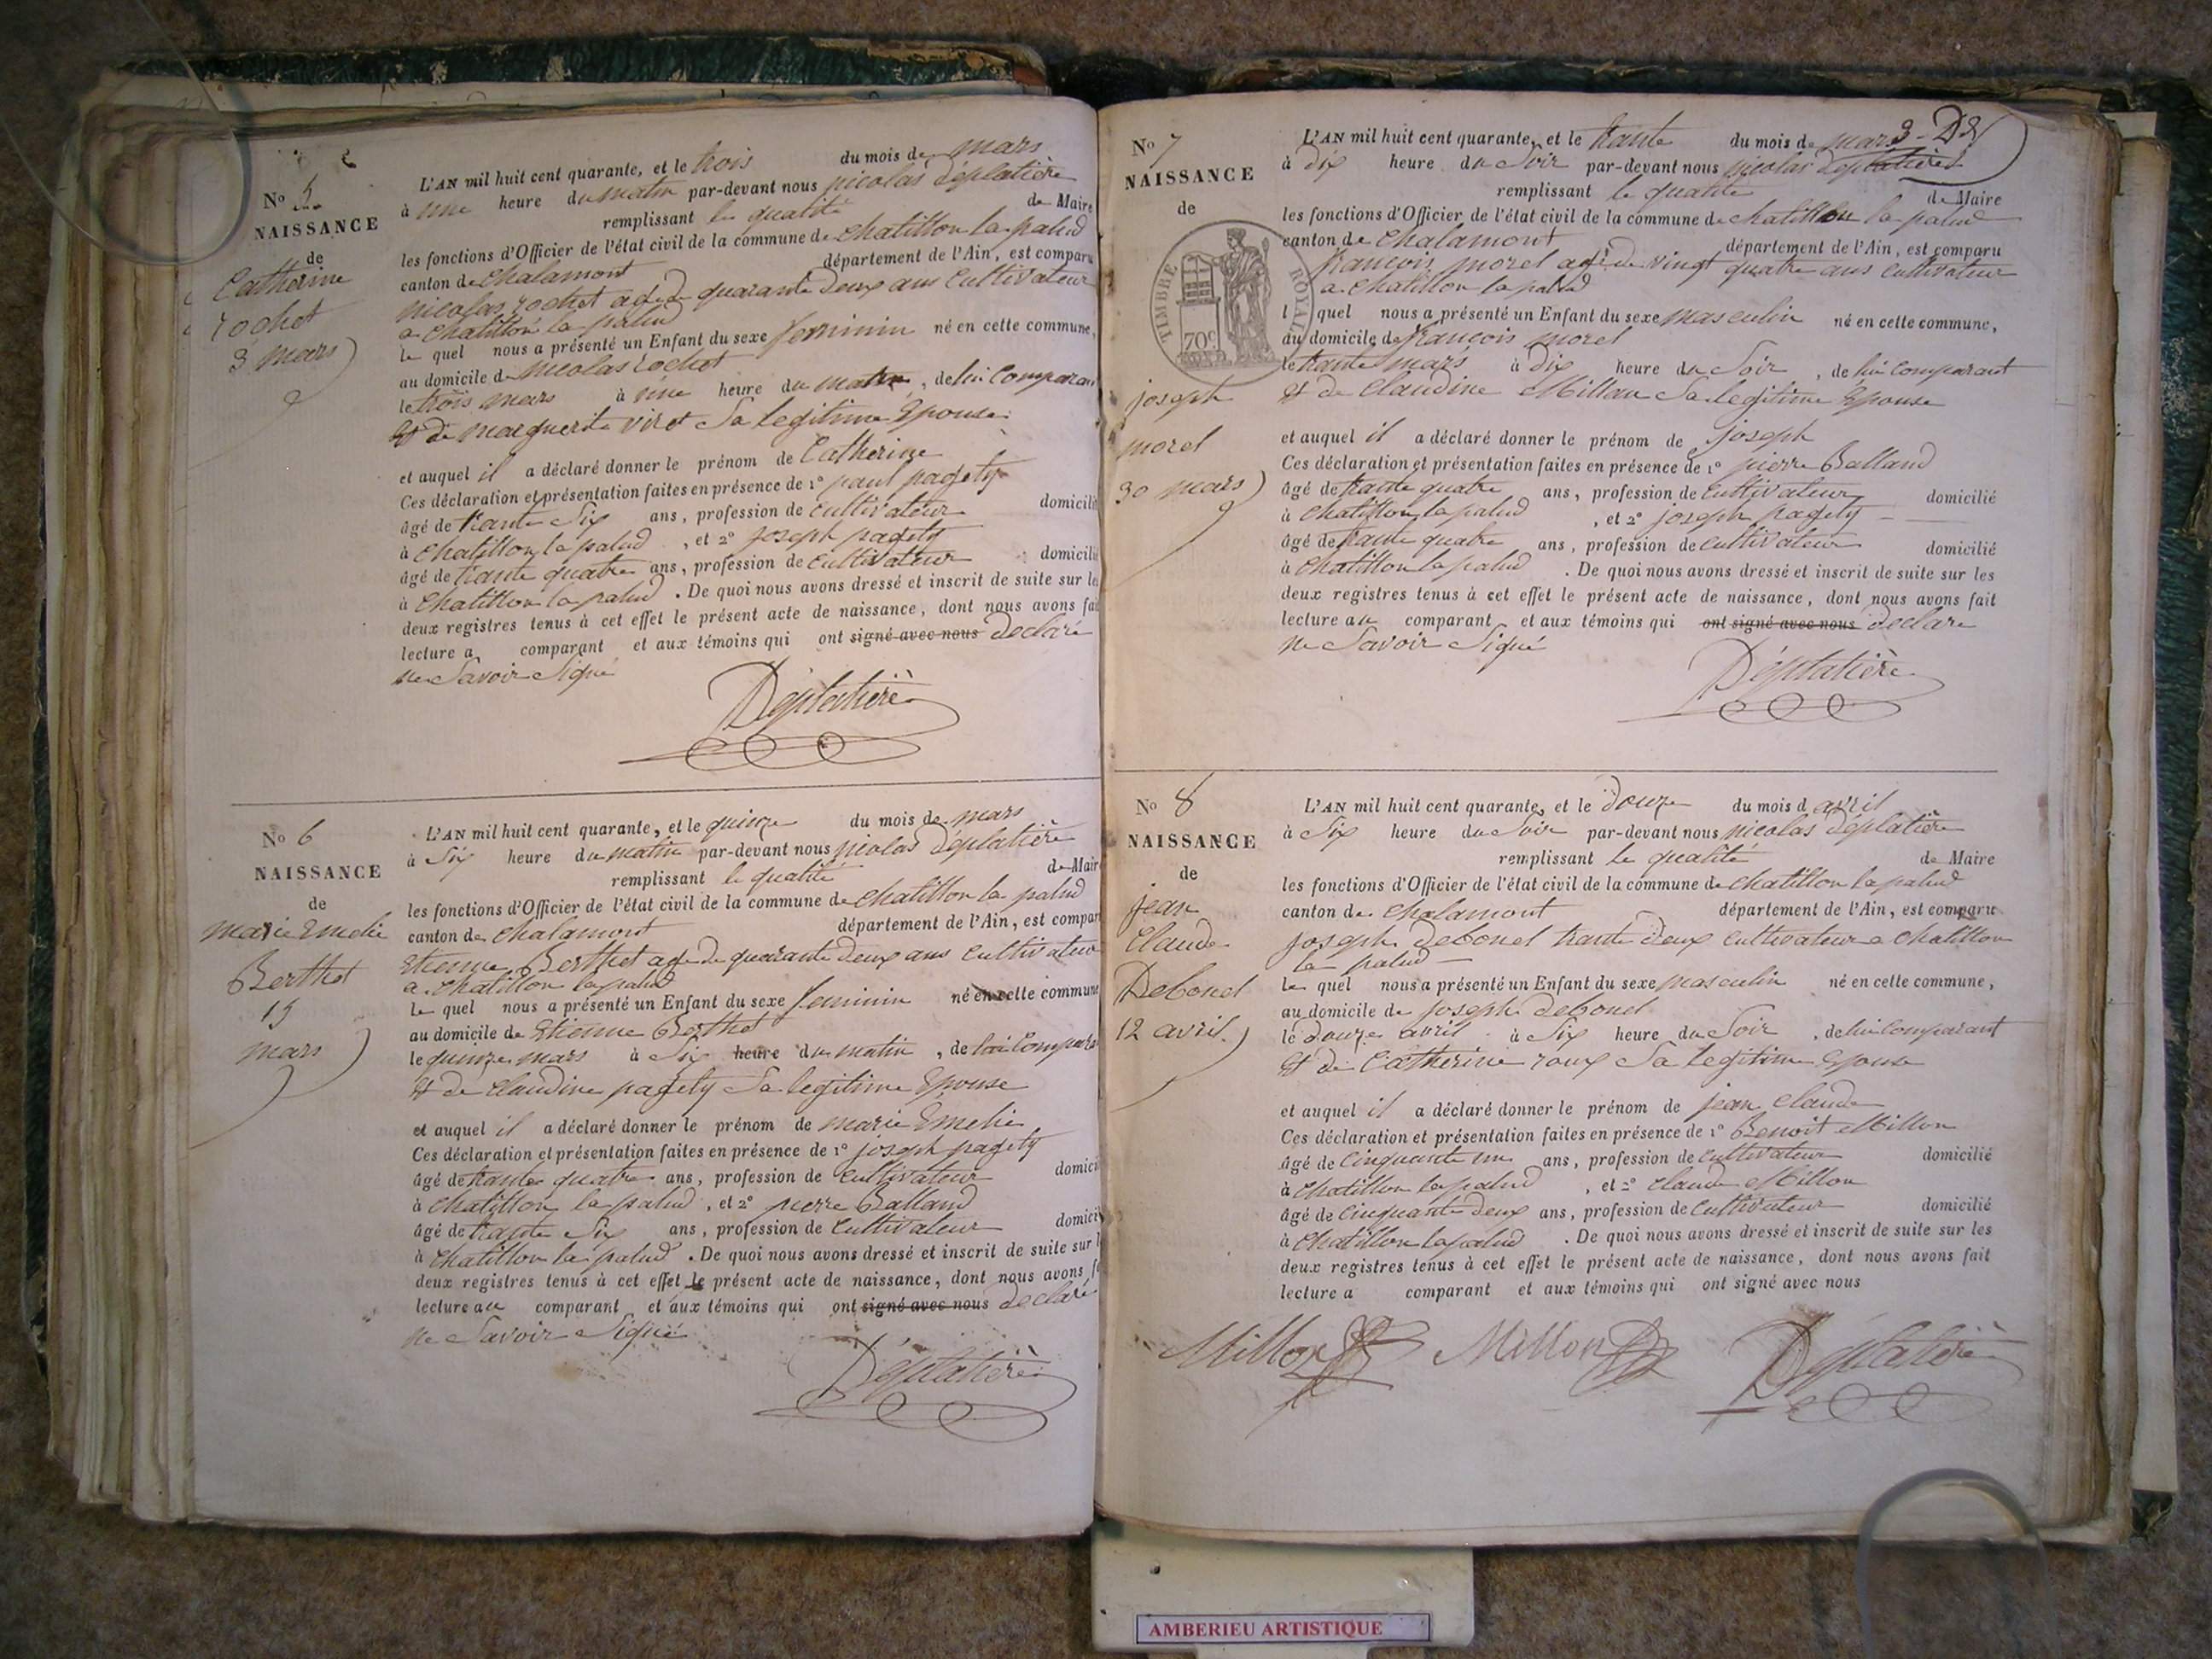 No 5
NAISSANCE
de
Catherine
rochet
3 mars
L'AN mil huit cent quarante, et le trois du mois de mars
à une heure du matin par-devant nous nicolas Déplatière
remplissant la qualité de Maire
les fonctions d'Officier de l'état civil de la commune de chatillon la palud
canton de chalamont département de l'Ain, est comparu
nicolas rochet agé de quarante deux ans cultivateur
a chatillon la palud
le quel nous a présenté un Enfant du sexe feminin né en cette commune,
au domicile de nicolas rochet
le trois mars à une heure du matin, de lui Comparant
Et de marguerite viret Sa legitime Epouse
et auquel il a déclaré donner le prénom de Catherine
Ces déclaration et présentation faites en présence de 1º paul pagety
âgé de trante Six ans, profession de cultivateur domicilié
à chatillon la palud, et 2º joseph pagety
âgé de trante quatre ans, profession de cultivateur domicilié
à chatillon la palud. De quoi nous avons dressé et inscrit de suite sur les
deux registres tenus à cet effet le présent acte de naissance, dont nous avons fait
lecture a comparant et aux témoins qui ont signé avec nous declaré
ne Savoir Signé
Déplatière
No 6
NAISSANCE
de
marie Emelie
Berthet
15
mars
L'AN mil huit cent quarante, et le quinze du mois de mars
à Six heure du matin par-devant nous nicolas Déplatière
remplissant la qualité de Maire
les fonctions d'Officier de l'état civil de la commune de chatillon la palud
canton de chalamont département de l'Ain, est comparu
Etienne Berthet agé de quarante deux ans cultivateur
a chatillon la palud
le quel nous a présenté un Enfant du sexe feminin né en cette commune
au domicile de Etienne Berthet
le quinze mars à Six heure du matin, de lui Comparant
Et de Claudine pagety Sa legitime Epouse
et auquel il a déclaré donner le prénom de marie Emelie
Ces déclaration et présentation faites en présence de 1º joseph pagety
âgé de trante quatre ans, profession de cultivateur domicilié
à chatillon la palud, et 2º pierre Balland
âgé de trante Six ans, profession de Cultivateur domicilié
à chatillon la palud. De quoi nous avons dressé et inscrit de suite sur les
deux registres tenus à cet effet le présent acte de naissance, dont nous avons fait
lecture au comparant et aux témoins qui ont signé avec nous declaré
ne Savoir Signé
Déplatière
3 - D
No 7
NAISSANCE
de
TIMBRE ROYAL
70c
joseph
morel
30 mars
L'AN mil huit cent quarante, et le trante du mois de mars
à dix heure du Soir par-devant nous nicolas Déplatière
remplissant la qualité de Maire
les fonctions d'Officier de l'état civil de la commune de chatillon la palud
canton de chalamont département de l'Ain, est comparu
francois morel agé de vingt quatre ans cultivateur
a chatillon la palud
l quel nous a présenté un Enfant du sexe masculin né en cette commune,
au domicile de francois morel
le trante mars à dix heure du Soir, de lui Comparant
Et de Claudine Millon Sa legitime Epouse
et auquel il a déclaré donner le prénom de joseph
Ces déclaration et présentation faites en présence de 1º pierre Balland
âgé de trante quatre ans, profession de cultivateur domicilié
à chatillon la palud, et 2º joseph pagety
âgé de trante quatre ans, profession de cultivateur domicilié
à chatillon la palud. De quoi nous avons dressé et inscrit de suite sur les
deux registres tenus à cet effet le présent acte de naissance, dont nous avons fait
lecture au comparant et aux témoins qui ont signé avec nous declaré
ne Savoir Signé
Déplatière
No 8
NAISSANCE
de
jean
Claude
Debonel
12 avril
L'AN mil huit cent quarante, et le Douze du mois d avril
à Six heure du Soir par-devant nous nicolas Déplatière
remplissant la qualité de Maire
les fonctions d'Officier de l'état civil de la commune de chatillon la palud
canton de chalamont département de l'Ain, est comparu
joseph debonel trante deux cultivateur a chatillon
la palud
le quel nous a présenté un Enfant du sexe masculin né en cette commune,
au domicile de joseph debonel
le douze avril à Six heure du Soir, de lui Comparant
Et de Catherine roux Sa legitime Epouse
et auquel il a déclaré donner le prénom de jean Claude
Ces déclaration et présentation faites en présence de 1º Benoit Millon
âgé de Cinquante un ans, profession de cultivateur domicilié
à chatillon la palud, et 2º claude Millon
âgé de Cinquante deux ans, profession de Cultivateur domicilié
à chatillon la palud. De quoi nous avons dressé et inscrit de suite sur les
deux registres tenus à cet effet le présent acte de naissance, dont nous avons fait
lecture a comparant et aux témoins qui ont signé avec nous
Millon Millon Déplatière
AMBERIEU ARTISTIQUE